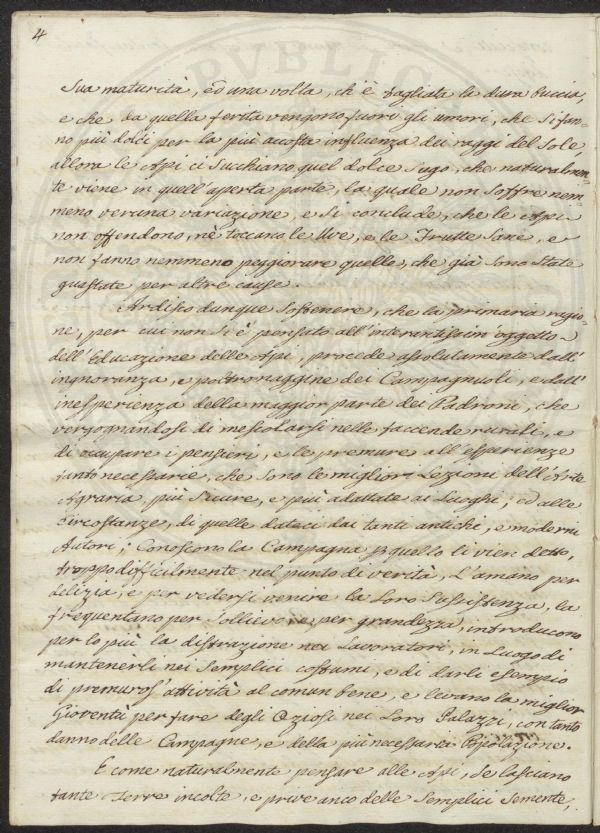 4
Sua maturità, ed una volta, ch'è tagliata la dura buccia,
e che, da quella ferita vengono fuori gli umori, che si fan-
no più dolci per la più accosta influenza dei raggi del Sole,
allora le Api ci Succhiano quel dolce Sugo, che naturalmen-
te viene in quell'aperta parte, la quale non Soffre nem-
meno veruna variazione, e Si conclude, che le Api
non offendono, nè toccano le Uve, e le Frutte Sane, e
non fanno nemmeno peggiorare quelle, che già Sono State
guastate per altre cause.
Ardisco dunque Sostenere, che la primaria ragio-
ne, per cui non Si è pensato all'interantissim'oggetto
dell'Educazione delle Api, procede assolutamente dall'
ingnoranza, e poltronaggine dei Campagnuoli, e dall'
inesperienza della maggior parte dei Padroni, che
vergognandosi di mescolarsi nelle faccende rurali, e
di occupare i pensieri, e le premure all'esperienze
tanto necessarie, che Sono le migliori Lezioni dell'Arte
Agraria, più Sicure, e più adattate ai Luoghi, ed alle
circostanze, di quelle dateci dai tanti antichi, e moderni
Autori; Conoscono la Campagna p quello li vien detto,
troppo difficilmente nel punto di verità, L'amano per
delizia, e per vedersi venire la Loro Sussistenza, la
frequentano per Sollievo, e per grandezza, introducono
per lo più la distrazione nei Lavoratori, in Luogo di
mantenerli nei Semplici costumi, e di darli esempio
di premuros'attività al comun bene, e levano la miglior
Gioventù per fare degli Oziosi nei Loro Palazzi, con tanto
danno delle Campagne, e della più necessaria Popolazione.
E come naturalmente pensare alle Api, Se lasciano
tante Terre incolte, e prive anco delle Semplici Semente,